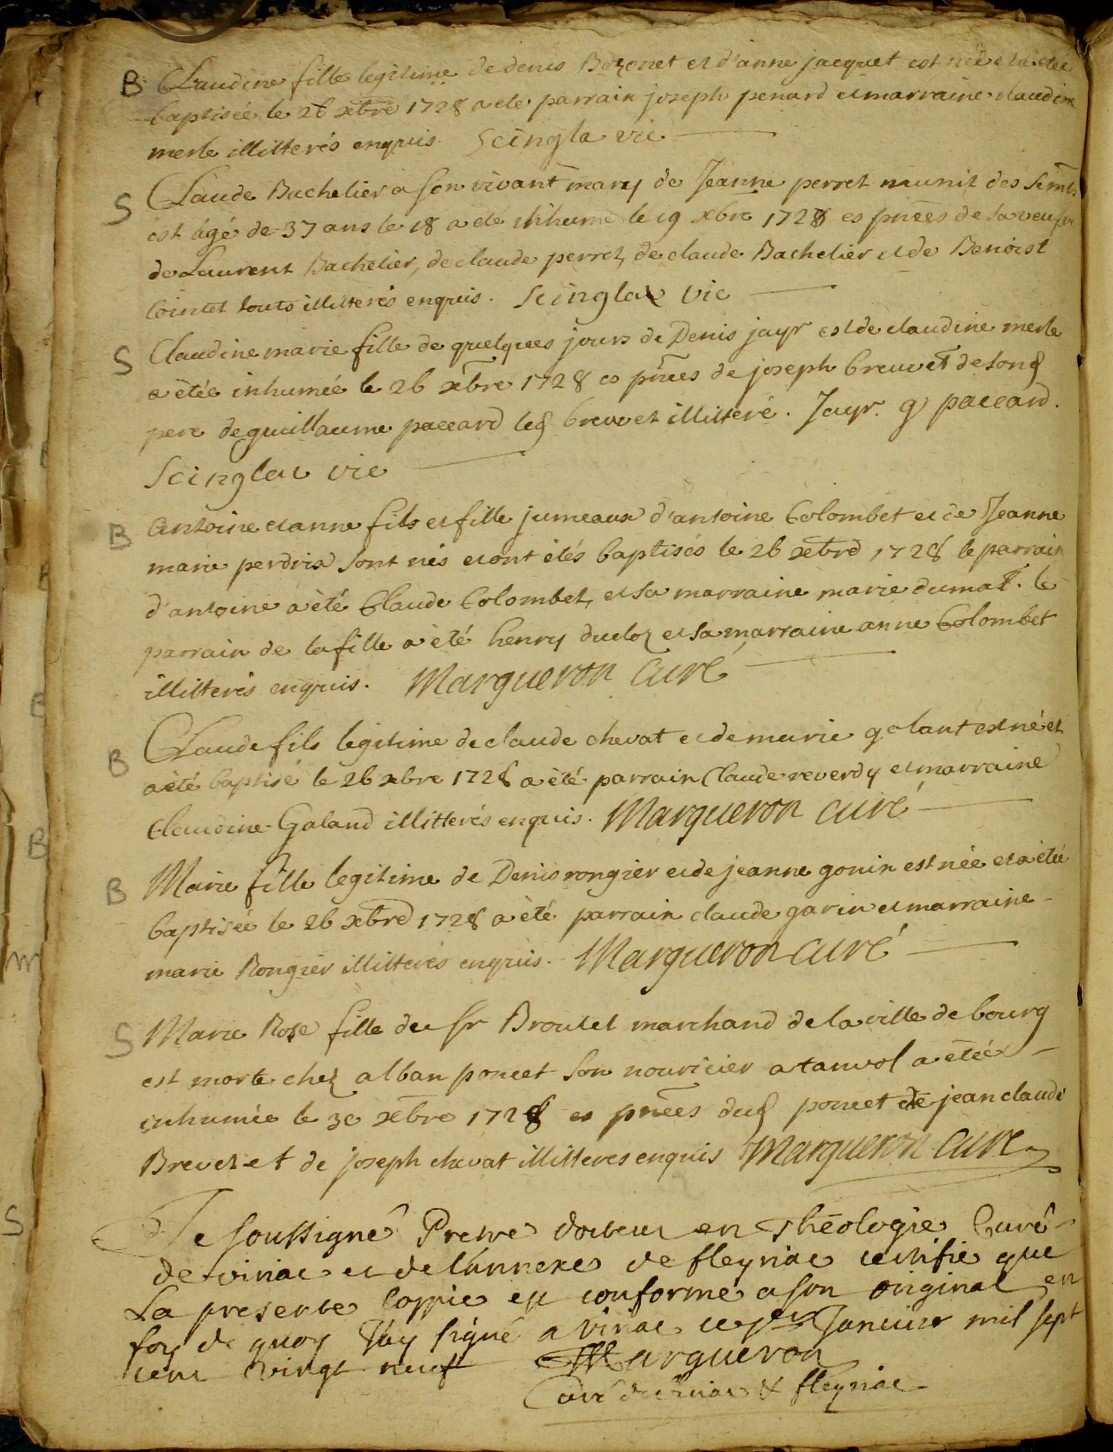 B Claudine fille legitime de denis Bozonet et d'anne jacquet est née et a étée
baptisée le 26 xbre 1728 a eté parrain joseph penard et marraine claudine
merle illitterés enquis. Scingla vic
S Claude Bachelier a son vivant mary de Jeanne perret munit des Semts
est âgé de 37 ans le 18 a eté inhumé le 19 xbre 1728 es pñces de sa veufve
de Laurent Bachelier, de claude perret, de claude Bachelier et de Benoist
Cointet touts illitterés enquis. Scinglat vic
S Claudine marie fille de quelques jours de Denis jayr et de claudine merle
a étée inhumée le 26 xbre 1728 es pñces de joseph breuvet de sond
pere de guillaume paccard led breuvet illitteré. Jayr. g paccard.
Scinglat vic
B Antoine et anne fils et fille jumeaux d'antoine Colombet et de Jeanne
marie perdrix sont nés et ont étés baptisés le 26 xbre 1728 le parrain
d'antoine a été Claude Colombet, et sa marraine marie dumat. le
parrain de la fille a été henry ducloz et sa marraine anne Colombet
illitterés enquis. Margueron Curé
B Claude fils legitime de claude chevat et de marie galant est né et
a été baptisé le 26 xbre 1728 a été parrain Claude reverdy et marraine
Claudine Galand illitterés enquis. Margueron curé
B Marie fille legitime de Denis rongier et de jeanne gonin est née et a étée
baptisée le 26 xbre 1728 a été parrain claude garin et marraine
marie Rongier illitterés enquis. Margueron curé
S Marie Rose fille du sr Broulet marchand de la ville de bourg
est morte chez alban poncet son nouricier a tanvol a étée
inhumée le 30 xbre 1728 es pñces dud poncet de jean claude
Brevet et de joseph chevat illitteres enquis Margueron Curé
Je soussigné Pretre docteur en Théologie Curé
de viriac et de l'annexe de fleyriac certifie que
La presente Coppie est conforme a son original en
foy de quoy J'ay signé a viriac ce 1er Janvier mil sept
cent vingt neuf Margueron
Curé de viriac & fleyriac